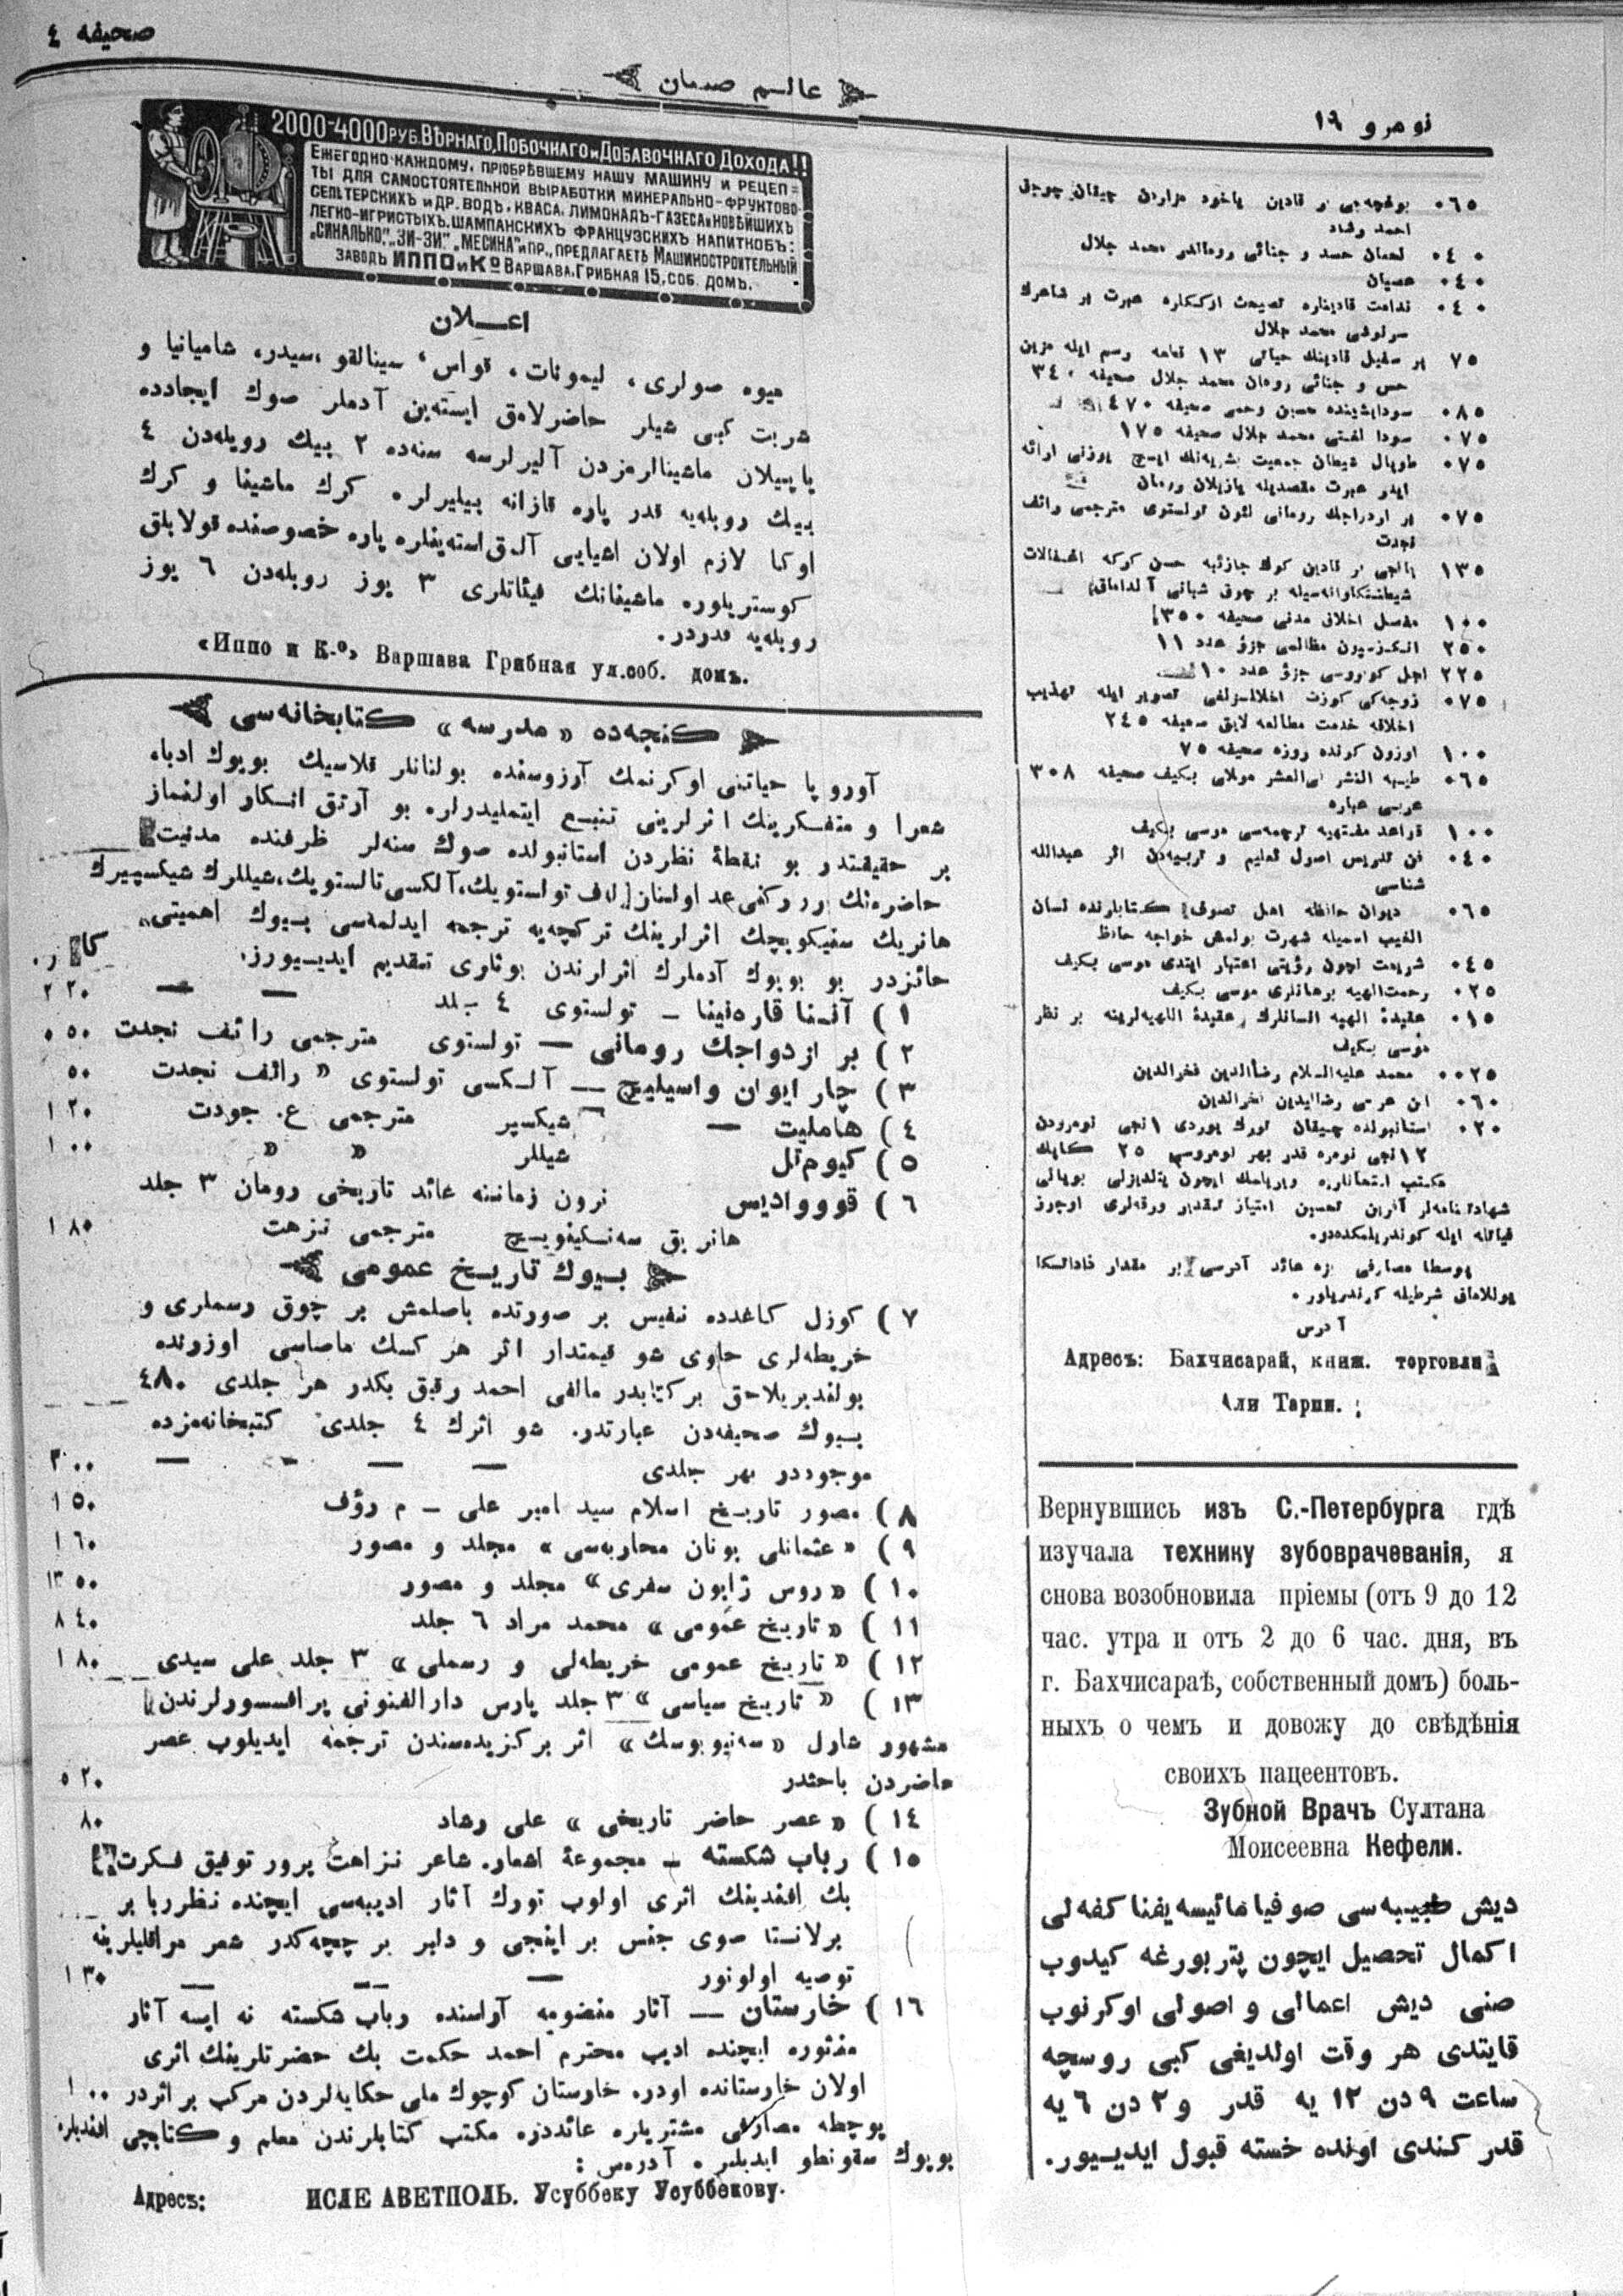 صحیفه ٤
عالم صبیان
نومرو ١٩
2000-4000 РУБ. ВѢРНАГО, ПОБОЧНАГО И ДОБАВОЧНАГО ДОХОДА!!
ЕЖЕГОДНО КАЖДОМУ, ПРІОБРѢВШЕМУ НАШУ МАШИНУ И РЕЦЕП=
ТЫ ДЛЯ САМОСТОЯТЕЛЬНОЙ ВЫРАБОТКИ МИНЕРАЛЬНО-ФРУКТОВО-
СЕЛЬТЕРСКИХЪ И ДР. ВОДЪ, КВАСА, ЛИМОНАДЪ-ГАЗЕСА И НОВѢЙШИХЪ
ЛЕГКО-ИГРИСТЫХЪ, ШАМПАНСКИХЪ ФРАНЦУЗСКИХЪ НАПИТКОВЪ:
„СИНАЛЬКО", „ЗИ-ЗИ", „МЕСИНА" И ПР., ПРЕДЛАГАЕТЪ МАШИНОСТРОИТЕЛЬНЫЙ
ЗАВОДЪ ИППО И Кº ВАРШАВА, ГРИБНАЯ 15, СОБ. ДОМЪ.
اعـــلان
میوه صولری، لیمونات، قواس، سینالقو، سیدر، شامپانیا و
شربت کبی شیلر حاضرلامق ایسته‌ین آدملر صوك ایجادده
یاپیلان ماشینالرمزدن آلیرلرسه سنه‌ده ٢ بیك روبله‌دن ٤
بیك روبله‌یه قدر پاره قازانه بیلیرلر. کرك ماشینا و کرك
اوکا لازم اولان اشیایی آلمق استه‌ینلره پاره خصوصنده قولایلق
کوستریلور. ماشینانك فیئاتلری ٣ یوز روبله‌دن ٦ یوز
روبله‌یه قدردر.
«Иппо и К-º» Варшава Грибная ул. соб. домъ.
کنجه‌ده «مدرسه» کتابخانه‌سی
آوروپا حیاتنی اوکرنمك آرزوسنده بولنانلر قلاسیك بویوك ادباء
شعرا و متفکرینك اثرلرینی تتبع ایتملیدرلر. بو آرتق انکار اولنماز
بر حقیقتدر بو نقطهٔ نظردن استانبولده صوك سنه‌لر ظرفنده مدنیت
حاضره‌نك بر رکنی عد اولنان لف تولستویك، آلکسی تالستویك، شیللرك شیکسپیرك
هانریك سنیکویچك اثرلرینك ترکچه‌یه ترجمه ایدلمه‌سی بیوك اهمیتی
حائزدر بو بویوك آدملرك اثرلرندن بونلری تقدیم ایدییورز.
١) آننا قاره‌نینا — تولستوی ٤ جلد — — ٢٢٠
٢) بر ازدواجك رومانی — تولستوی مترجمی رائف نجدت ٠٥٠
٣) چار ایوان واسیلیچ — آلکسی تولستوی « رائف نجدت ٥٠
٤) هاملیت — شیکسپر مترجمی ع. جودت ١٢٠
٥) کیوم تل شیللر « « ١٠٠
٦) قووادیس نرون زماننه عائد تاریخی رومان ٣ جلد
هانریق سه‌نکیفویچ مترجمی نزهت ١٨٠
بیوك تاریخ عمومی
٧) کوزل کاغدده نفیس بر صورتده باصلمش بر چوق رسملری و
خریطه‌لری حاوی شو قیمتدار اثر هر کسك ماصاسی اوزرنده
بولندیریلاجق بر کتابدر مالفی احمد رفیق بکدر هر جلدی ٤٨٠
بیوك صحیفه‌دن عبارتدر. شو اثرك ٤ جلدی کتبخانه‌مزده
موجوددر بهر جلدی — — — — ٣٠٠
٨) مصور تاریخ اسلام سید امیر علی — م رؤف ١٥٠
٩) «عثمانلی یونان محاربه‌سی» مجلد و مصور ١٦٠
١٠) «روس ژاپون سفری» مجلد و مصور ١٣٥٠
١١) «تاریخ عمومی» محمد مراد ٦ جلد ٨٤٠
١٢) «تاریخ عمومی خریطه‌لی و رسملی» ٣ جلد علی سیدی ١٨٠
١٣) «تاریخ سیاسی» ٣ جلد پارس دارالفنونی پرافسسورلرندن
مشهور شارل «سه‌نیوبوسك» اثر برکزیده‌سندن ترجمه ایدیلوب عصر
حاضردن باحثدر ٥٢٠
١٤) «عصر حاضر تاریخی» علی رشاد ٨٠
١٥) رباب شکسته — مجموعهٔ اشعار. شاعر نزاهت پرور توفیق فکرت
بك افندینك اثری اولوب تورك آثار ادبیه‌سی ایچنده نظرربا بر
برلانتا صوی جنس بر اینجی و دلبر بر چچه‌کدر شعر مراقلیلرینه
توصیه اولونور — — — ١٣٠
١٦) خارستان — آثار منضومه آراسنده رباب شکسته نه ایسه آثار
منثوره ایچنده ادیب محترم احمد حکمت بك حضرتلرینك اثری
اولان خارستانده اودر. خارستان کوچوك ملی حکایه‌لردن مرکب بر اثردر ١٠٠
پوچطه مصارفی مشتریلره عائددر. مکتب کتابلرندن معلم و کتابچی افندیلره
بویوك سقونطو ایدیلیر. آدرس:
Адресъ: ЕЛИСАВЕТПОЛЬ. Усуббеку Усуббекову.
٠٦٥ بوغچه‌جی بر قادین یاخود مزاردن چیقان چوجق
احمد رشاد
٠٤٠ لمعان حسد و جنائی رومالندر محمد جلال
٠٤٠ عصیان
٠٤٠ ندامت قادینلره نصیحت ارککلره عبرت بر شاعرك
سرلوشی محمد جلال
٧٥ بر سفیل قادینك حیاتی ١٣ قطعه رسم ایله مزین
حس و جنائی رومان محمد جلال صحیفه ٣٤٠
٠٨٥ سوداپشینده حسین رحمی صحیفه ٤٧٠
٠٧٥ سودا لفتی محمد جلال صحیفه ١٧٥
٠٧٥ طوپال شیطان جمعیت بشریه‌نك ایچ یوزنی ارائه
ایدر عبرت مقصدیله یازیلان رومان
٠٧٥ بر ازدواجك رومانی لئون تولستوی مترجمی رائف
نجدت
١٠٠ مفصل اخلاق مدنی صحیفه ٣٥٠
٢٥٠ انکیزیسیون مظالمی جزؤ عدد ١١
٢٢٥ اجل کوپروسی جزؤ عدد ١٠
اخلاقه خدمت مطالعه لایق صحیفه ٢٤٥
١٠٠ اوزون کونده روزه صحیفه ٧٥
عربی عباره
١٠٠ قواعد فقهیه ترجمه‌سی موسی بکیف
٠٤٠ فن تدریس اصول تعلیم و تربیه‌دن اثر عبدالله
شناسی
٠٦٥ دیوان حافظ اهل تصوف کتابلرنده لسان
الغیب اسمیله شهرت بولمش خواجه حافظ
٠٤٥ شریعت ایچون رؤیتی اعتبار ایتدی موسی بکیف
٠٢٥ رحمت الهیه برهانلری موسی بکیف
٠١٥ عقیدهٔ الهیه انسانلرك عقیدهٔ اللهیه‌لرینه بر نظر
موسی بکیف
٠٠٢٥ محمد علیه السلام رضاالدین فخرالدین
٠٦٠ ابن عربی رضاالدین فخرالدین
٠٢٠ استانبولده چیقان تورك یوردی ١نجی نومرودن
١٢نجی نومره قدر بهر نومروسی ٢٥ کاپك
مکتب امتحانلری ویریلمك ایچون یالدیزلی بویالی
شهادتنامه‌لر آفرین تحسین امتیاز تقدیر ورقه‌لری اوجوز
فیاتله ایله کوندریلمکده‌در.
پوسطا مصارفی بزه عائد آدرسی بر مقدار زاداتکا
یوللامق شرطیله کوندریلور.
آدرس
Адресъ: Бахчисарай, книж. торговля
Али Тарпи.
Вернувшись изъ С.-Петербурга гдѣ
изучала технику зубоврачеванія, я
снова возобновила пріемы (отъ 9 до 12
час. утра и отъ 2 до 6 час. дня, въ
г. Бахчисараѣ, собственный домъ) боль-
ныхъ о чемъ и довожу до свѣдѣнія
своихъ пацеентовъ.
Зубной Врачъ Султана
Моисеевна Кефели.
دیش طبیبه‌سی صوفیا مائیسه‌یفنا کفه‌لی
اکمال تحصیل ایچون پتربورغه کیدوب
صنی دیش اعمالی و اصولی اوکرنوب
قایتدی هر وقت اولدیغی کبی روسچه
ساعت ٩ دن ١٢ یه قدر و ٢ دن ٦ یه
قدر کندی اونده خسته قبول ایدییور.